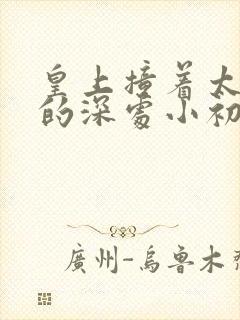 皇上撞着太
的深處小初
廣州-烏魯木齊